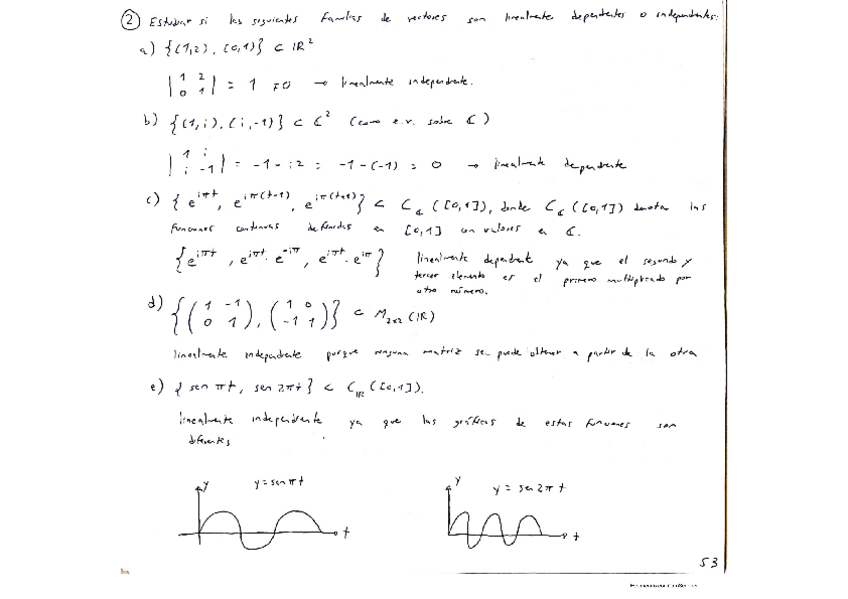 2 Estudiar si las siguientes familias de vectores son linealmente dependientes o independientes:
a) {(1,2), (0,1)} ⊂ IR²
| 1 2 ; 0 1 | = 1 ≠ 0 → linealmente independiente.
b) {(1,i), (i,-1)} ⊂ ℂ² (como e.v. sobre ℂ)
| 1 i ; i -1 | = -1 - i2 = -1 - (-1) = 0 → linealmente dependiente
c) {e^{iπt}, e^{iπ(t-1)}, e^{iπ(t+1)}} ⊂ C_ℂ ([0,1]), donde C_ℂ ([0,1]) denota las
funciones continuas definidas en [0,1] con valores en ℂ.
{e^{iπt}, e^{iπt}·e^{-iπ}, e^{iπt}·e^{iπ}} linealmente dependient ya que el segundo y
tercer elemento es el primero multiplicado por
otro número.
d) {( 1 -1 ; 0 1 ), ( 1 0 ; -1 1 )} ⊂ M_{2x2} (IR)
linealmente independiente porque ninguna matriz se puede obtener a partir de la otra
e) {sen πt, sen 2πt} ⊂ C_{IR} ([0,1]).
linealmente independiente ya que las gráficas de estas funciones son
diferentes
y y = sen πt t
y y = sen 2π t t
53